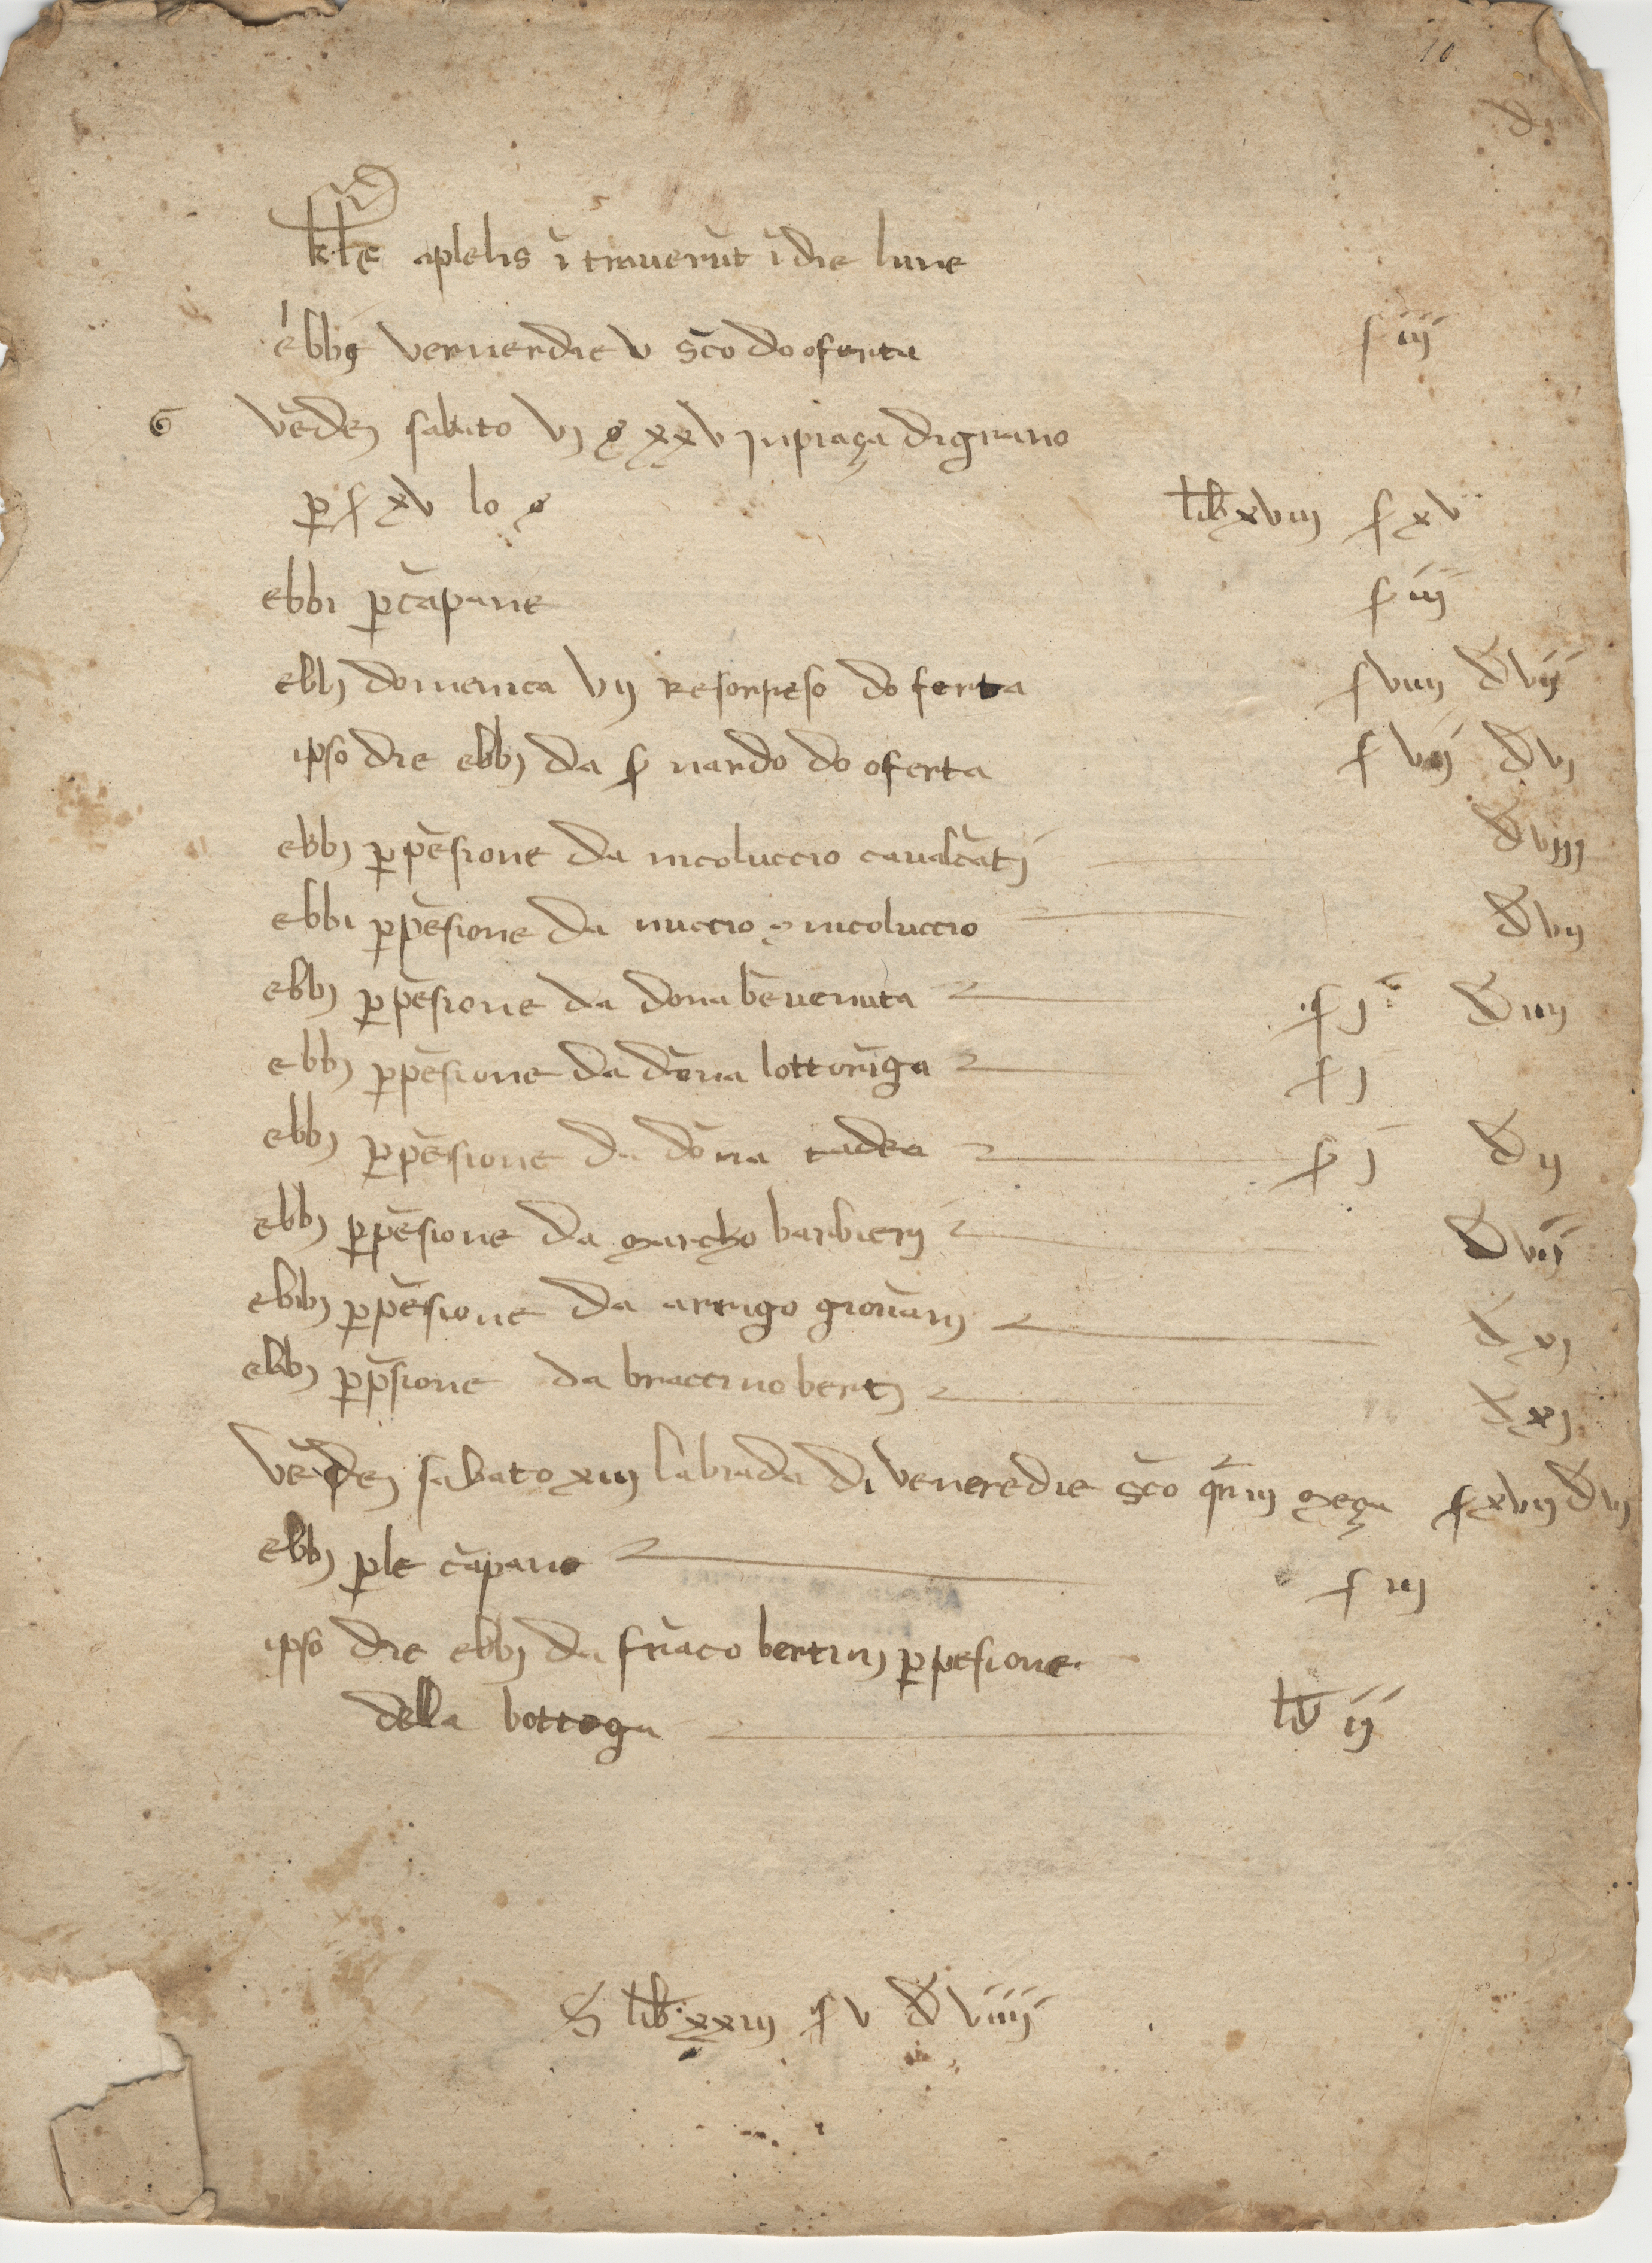 10
d
kle aplelis ītrauerūt ī die lune
ebbi veruerdie v sc̄o do oferta s iiij
vēdei sabato vj s xxv in piaça di grano
p s xv lo s lib xviij s xv
ebbi p cāpane s iij
ebbj domenica vij resorreso do ferta s viiij d vij
ipso die ebbj da s nardo do oferta s vij d vj
ebbj p pēsione da nicoluccio caualcātj d viij
ebbi p pēsione da nuccio nicoluccio d vij
ebbj p pēsione da dona bēuenuta s j d iiij
ebbj p pēsione da dōna lottorīga s j
ebbj p pēsione da dōna tadea s j d ij
ebbj p pēsione da marcho barbierj d vij
ebbj p pēsione da arrigo giouānj d xj
ebbj p pēsione da braccino bertj d xj
vēdei sabato xiij la biada di veneredie sc̄o meça s xvij d vj
ebbj p le cāpane s iij
ipso die ebbj da frāco bertinj p pesione
della bottega lib ij
S lib xxiij s v d viiij